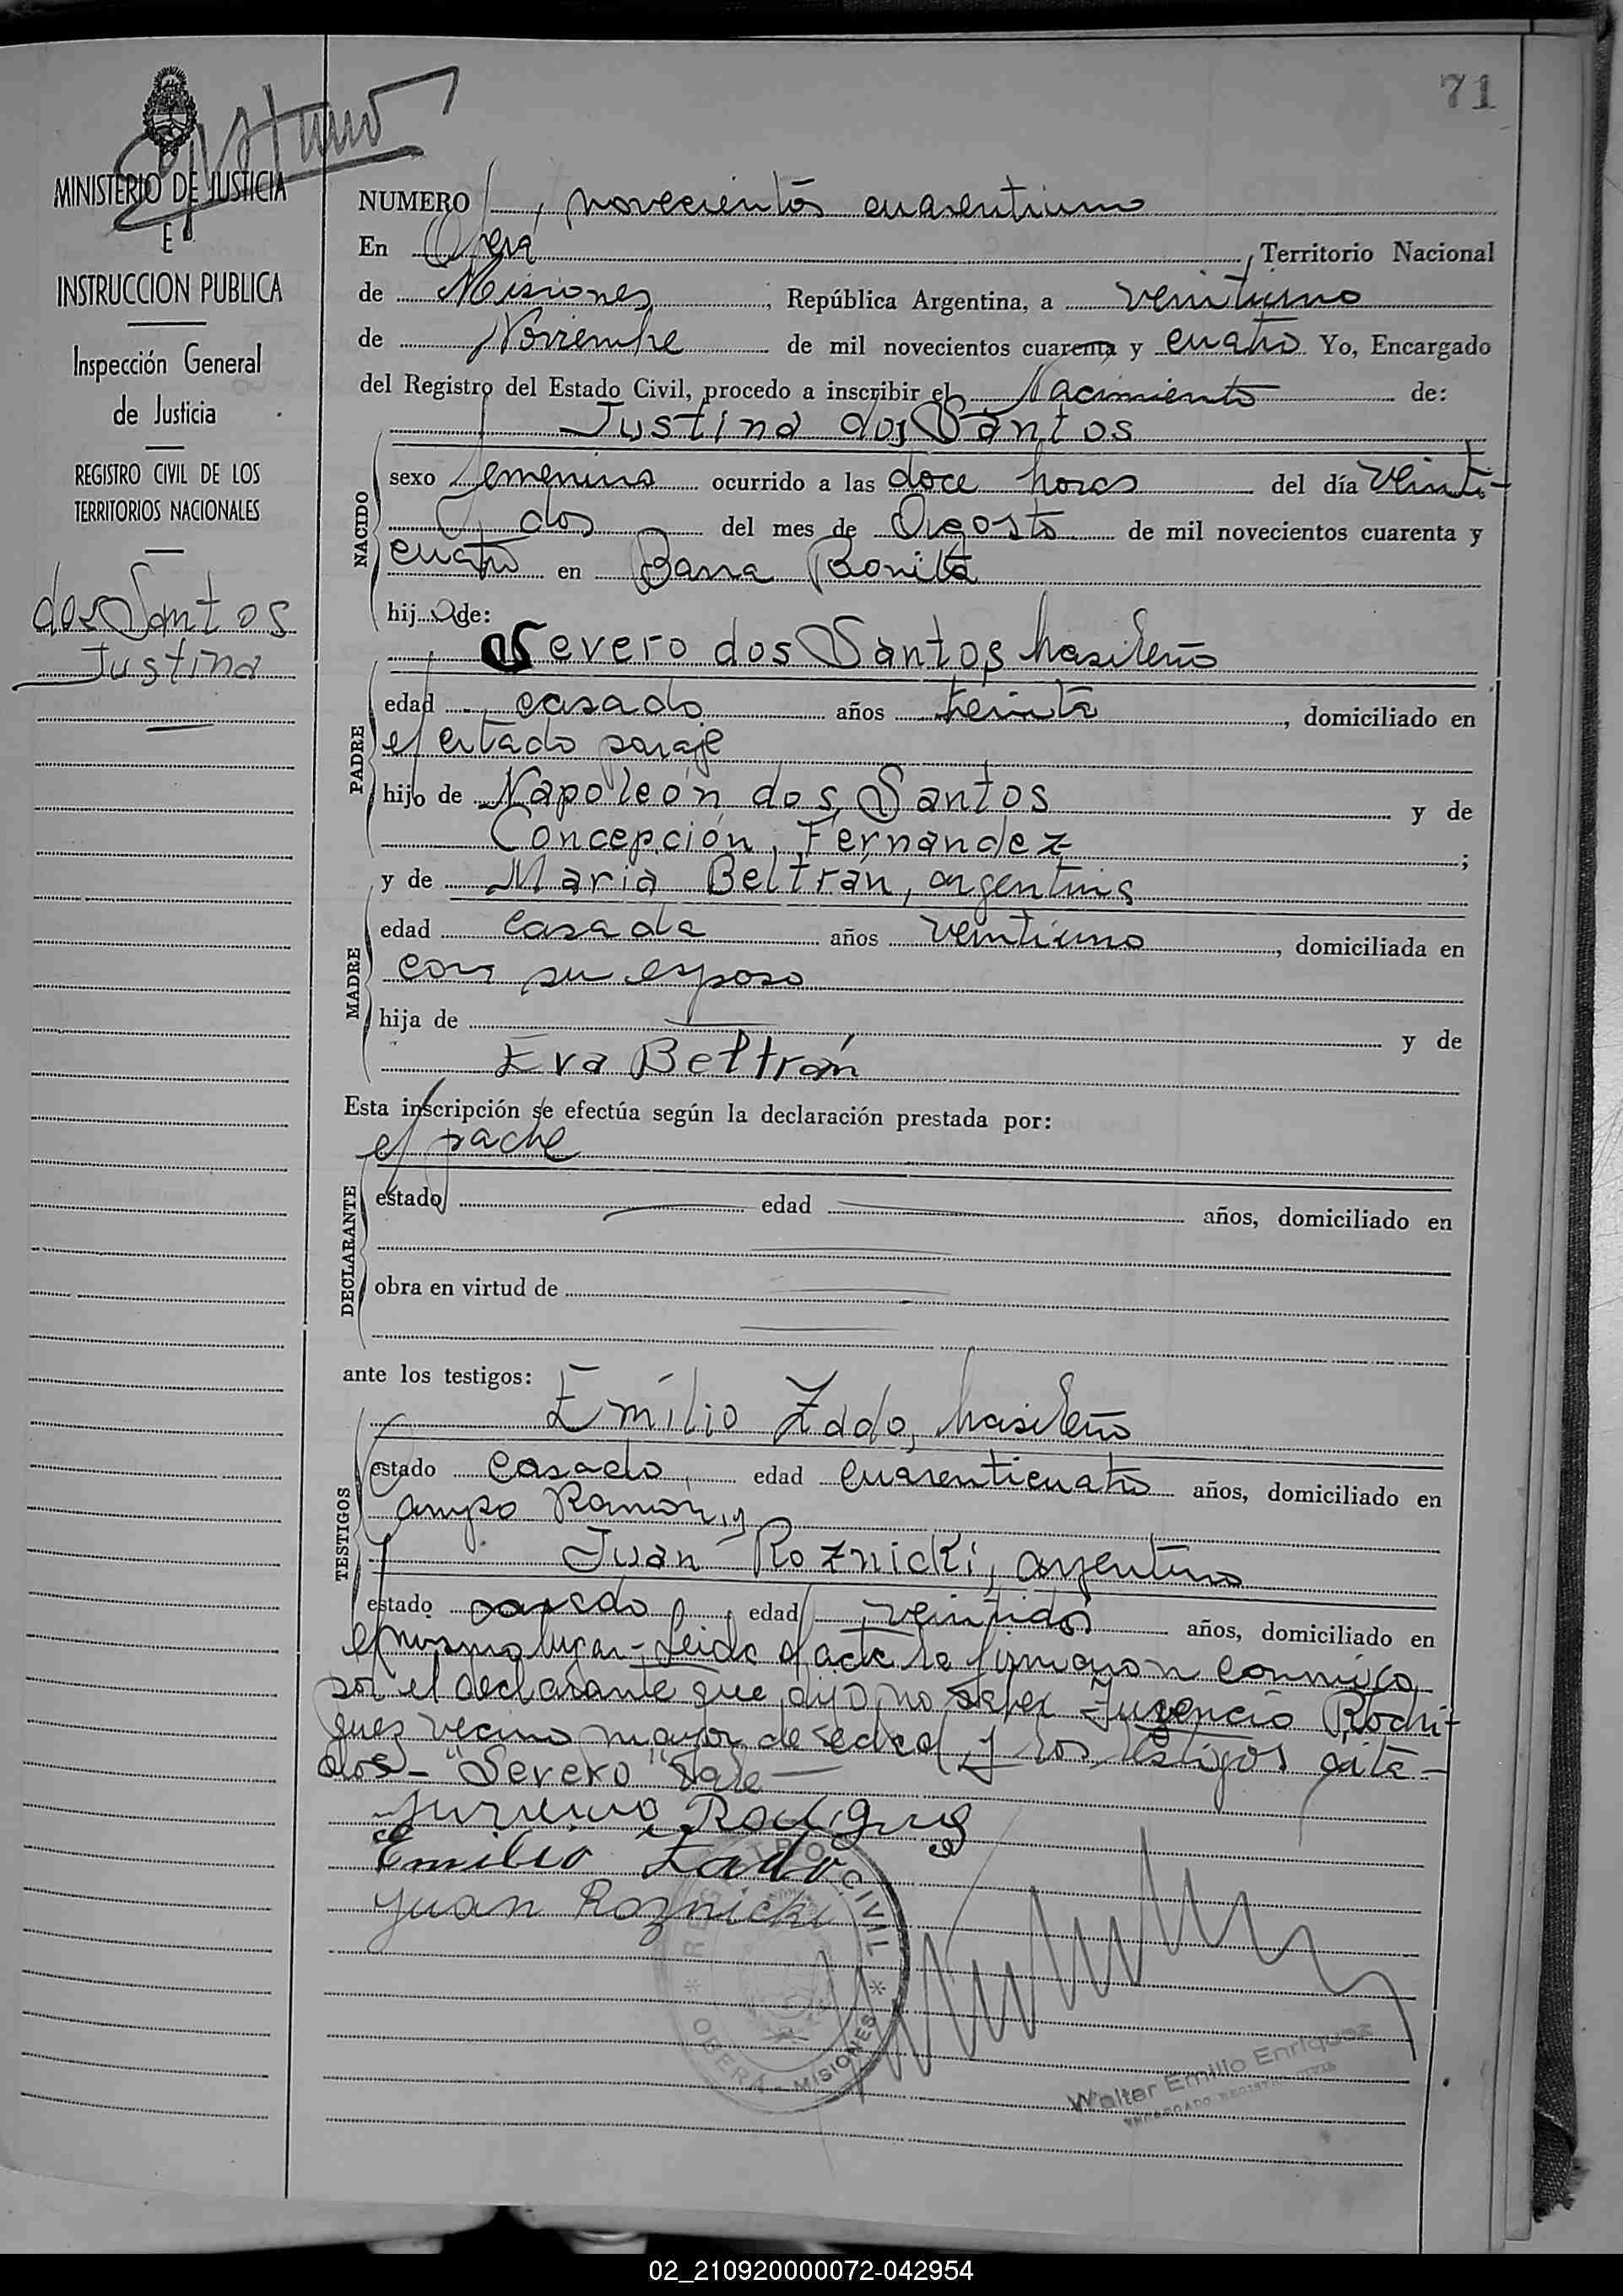 71
MINISTERIO DE JUSTICIA
E
INSTRUCCION PUBLICA
Inspección General
de Justicia
REGISTRO CIVIL DE LOS
TERRITORIOS NACIONALES
dos Santos
Justina
NUMERO novecientos cuarentiuno
En Oberá, Territorio Nacional
de Misiones, República Argentina, a veintiuno
de Noviembre de mil novecientos cuarenta y cuatro Yo, Encargado
del Registro del Estado Civil, procedo a inscribir el Nacimiento de:
Justina dos Santos
NACIDO
sexo femenino ocurrido a las doce horas del día veinti-
dos del mes de Agosto de mil novecientos cuarenta y
cuatro en Barra Bonita
hija de:
Severo dos Santos, brasileño
PADRE
edad casado años treinta, domiciliado en
el citado paraje
hijo de Napoleón dos Santos y de
Concepción Fernandez;
y de María Beltrán, argentina
MADRE
edad casada años veintiuno, domiciliada en
con su esposo
hija de y de
Eva Beltrán
Esta inscripción se efectúa según la declaración prestada por:
el padre
DECLARANTE
estado edad años, domiciliado en
obra en virtud de
ante los testigos:
Emilio Zado, brasileño
TESTIGOS
estado casado, edad cuarenticuatro años, domiciliado en
Campo Ramón, y
Juan Roznicki, argentino
estado casado edad veintidos años, domiciliado en
el mismo lugar - Leida el acta la firmaron conmigo
por el declarante que dijo no saber Juvencio Rodri-
guez vecino mayor de edad, y los testigos cita-
dos - "Severo" Vale
Juvencio Rodriguez
Emilio Zado
Juan Roznicki
REGISTRO CIVIL
OBERA - MISIONES
Walter Emilio Enriquez
ENCARGADO REGISTRO CIVIL
02_210920000072-042954